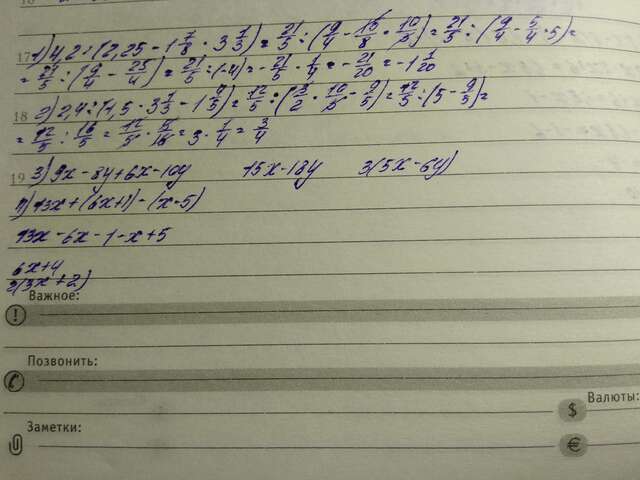 17 1) 4,2 : (2,25 - 1 7/8 · 3 1/3) = 21/5 : (9/4 - 15/8 · 10/3) = 21/5 : (9/4 - 5/4 · 5) =
= 21/5 : (9/4 - 25/4) = 21/5 : (-4) = - 21/5 · 1/4 = - 21/20 = -1 1/20
18 2) 2,4 : (1,5 · 3 1/3 - 1 4/5) = 12/5 : (3/2 · 10/3 - 9/5) = 12/5 : (5 - 9/5) =
= 12/5 : 16/5 = 12/5 · 5/16 = 3 · 1/4 = 3/4
19 3) 9x - 8y + 6x - 10y 15x - 18y 3(5x - 6y)
4) 13x + (6x+1) - (x-5)
13x - 6x - 1 - x + 5
6x + 4
2(3x + 2)
Важное:
Позвонить:
Валюты:
$
Заметки:
€